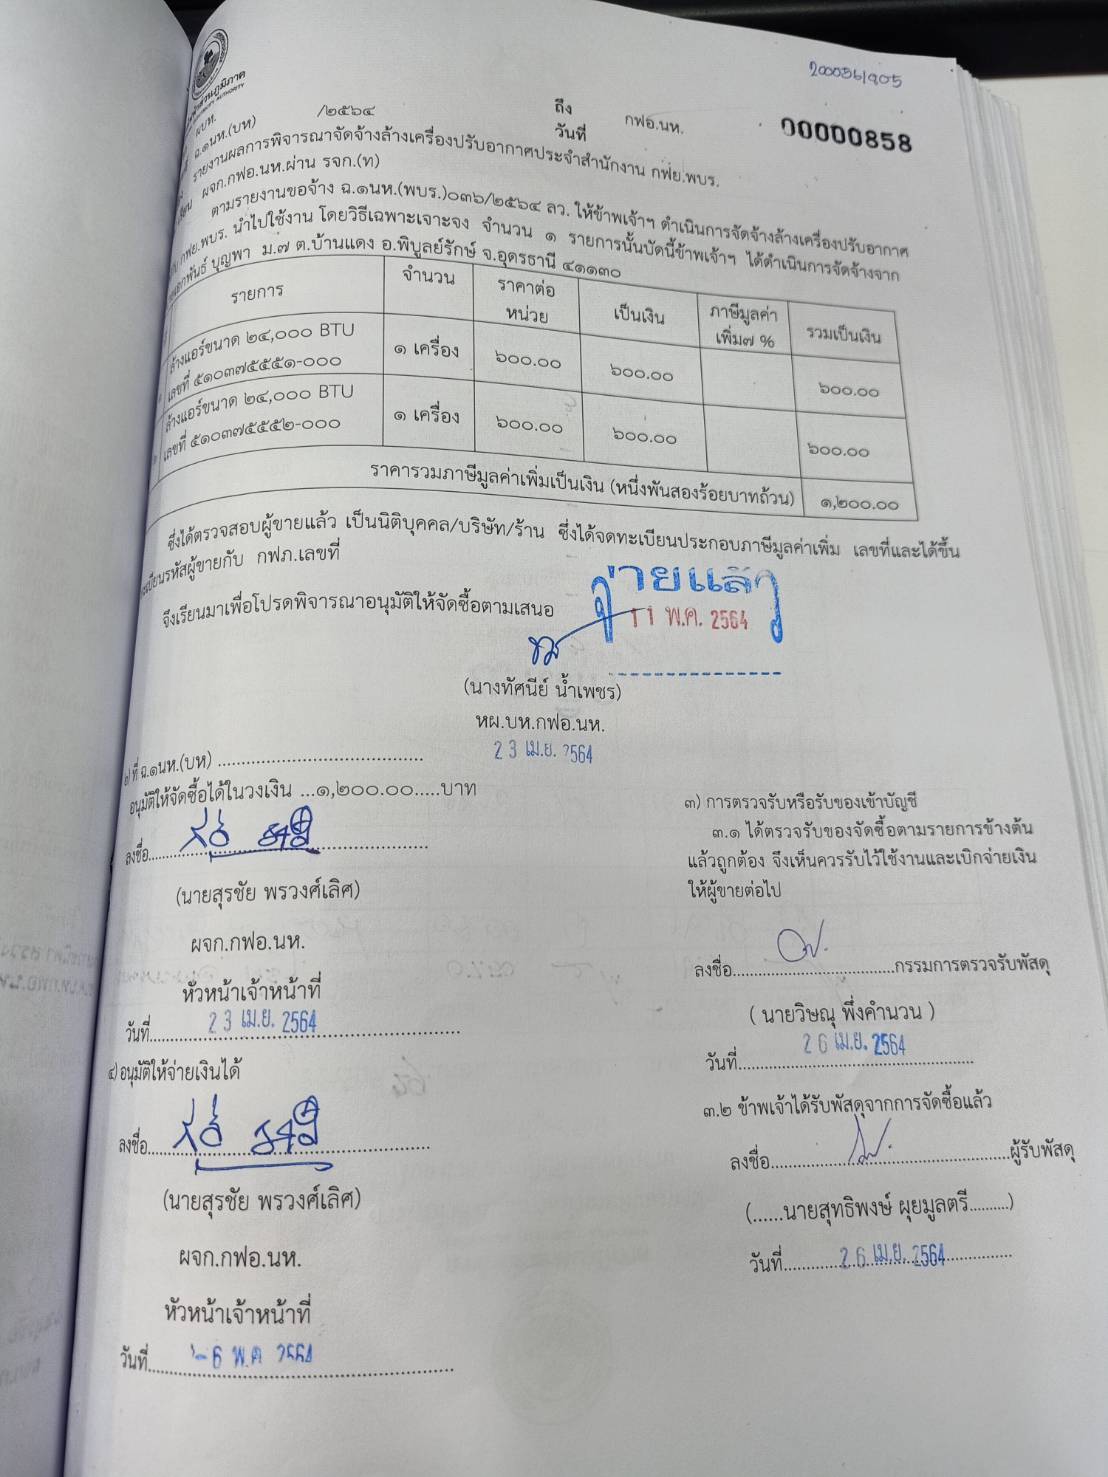 2000361905
ส่วนภูมิภาค
ผบห.
ถึง กฟอ.นห.
00000858
ฉ.๑นห.(บห) /๒๕๖๔ วันที่
รายงานผลการพิจารณาจัดจ้างล้างเครื่องปรับอากาศประจำสำนักงาน กฟย.พบร.
ผจก.กฟอ.นห.ผ่าน รจก.(ท)
ตามรายงานขอจ้าง ฉ.๑นห.(พบร.)๐๓๖/๒๕๖๔ ลว. ให้ข้าพเจ้าฯ ดำเนินการจัดจ้างล้างเครื่องปรับอากาศ
กฟย.พบร. นำไปใช้งาน โดยวิธีเฉพาะเจาะจง จำนวน ๑ รายการนั้นบัดนี้ข้าพเจ้าฯ ได้ดำเนินการจัดจ้างจาก
บุญพา ม.๗ ต.บ้านแดง อ.พิบูลย์รักษ์ จ.อุดรธานี ๔๑๑๓๐
รายการ จำนวน ราคาต่อหน่วย เป็นเงิน ภาษีมูลค่าเพิ่ม๗ % รวมเป็นเงิน
ล้างแอร์ขนาด ๒๔,๐๐๐ BTU ๑ เครื่อง ๖๐๐.๐๐ ๖๐๐.๐๐ ๖๐๐.๐๐
เลขที่ ๕๑๐๓๗๕๕๕๑-๐๐๐
ล้างแอร์ขนาด ๒๔,๐๐๐ BTU ๑ เครื่อง ๖๐๐.๐๐ ๖๐๐.๐๐ ๖๐๐.๐๐
เลขที่ ๕๑๐๓๗๕๕๕๒-๐๐๐
ราคารวมภาษีมูลค่าเพิ่มเป็นเงิน (หนึ่งพันสองร้อยบาทถ้วน) ๑,๒๐๐.๐๐
ซึ่งได้ตรวจสอบผู้ขายแล้ว เป็นนิติบุคคล/บริษัท/ร้าน ซึ่งได้จดทะเบียนประกอบภาษีมูลค่าเพิ่ม เลขที่และได้ขึ้น
ทะเบียนรหัสผู้ขายกับ กฟภ.เลขที่
จึงเรียนมาเพื่อโปรดพิจารณาอนุมัติให้จัดซื้อตามเสนอ
จ่ายแล้ว
11 พ.ค. 2564
(นางทัศนีย์ น้ำเพชร)
หผ.บห.กฟอ.นห.
23 เม.ย. 2564
๒) ที่ ฉ.๑นห.(บห) ......................................
อนุมัติให้จัดซื้อได้ในวงเงิน ...๑,๒๐๐.๐๐.....บาท
ลงชื่อ..................................................
(นายสุรชัย พรวงศ์เลิศ)
ผจก.กฟอ.นห.
หัวหน้าเจ้าหน้าที่
วันที่ 23 เม.ย. 2564
๓) การตรวจรับหรือรับของเข้าบัญชี
๓.๑ ได้ตรวจรับของจัดซื้อตามรายการข้างต้น
แล้วถูกต้อง จึงเห็นควรรับไว้ใช้งานและเบิกจ่ายเงิน
ให้ผู้ขายต่อไป
ลงชื่อ..............................กรรมการตรวจรับพัสดุ
( นายวิษณุ พึ่งคำนวน )
วันที่ 26 เม.ย. 2564
๔) อนุมัติให้จ่ายเงินได้
ลงชื่อ..................................................
(นายสุรชัย พรวงศ์เลิศ)
ผจก.กฟอ.นห.
หัวหน้าเจ้าหน้าที่
วันที่ -6 พ.ค 2564
๓.๒ ข้าพเจ้าได้รับพัสดุจากการจัดซื้อแล้ว
ลงชื่อ............................................ผู้รับพัสดุ
(......นายสุทธิพงษ์ ผุยมูลตรี.........)
วันที่ 26 เม.ย. 2564